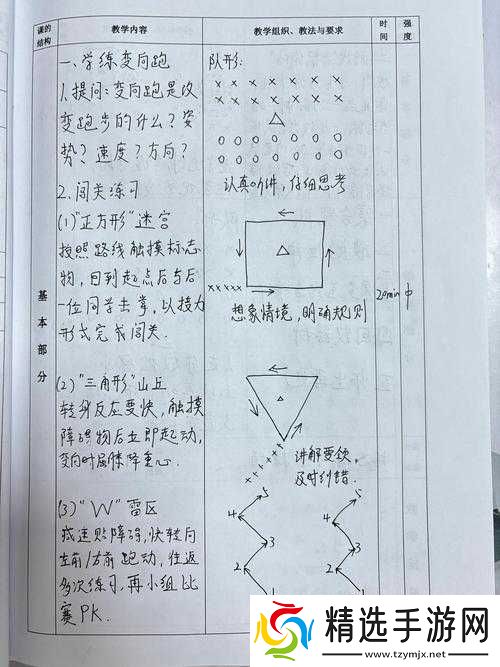 课的结构
教学内容
教学组织、教法与要求
时间
强度
基本部分
一、学练变向跑
1.提问:变向跑是改
变跑步的什么?姿
势?速度?方向?
2.闯关练习
(1)"正方形"迷宫
按照路线触摸标志
物,回到起点后与后
一位同学击掌,以接力
形式完成闯关.
(2)"三角形"山丘
转身反应要快,触摸
障碍物后立即起动,
变向时屈膝降重心.
(3)"W"雷区
减速贴障碍,快转向
左前/右前跑动,往返
多次练习,再小组比
赛PK.
队形:
× × × × × × ×
× × × × × × ×
认真听讲,仔细思考
×××××
想象情境,明确规则
××××××
讲解要领,
及时纠错.
5
4
3
2
1
5
4
3
2
1
20min
中
精选手游网
www.tzymjx.net